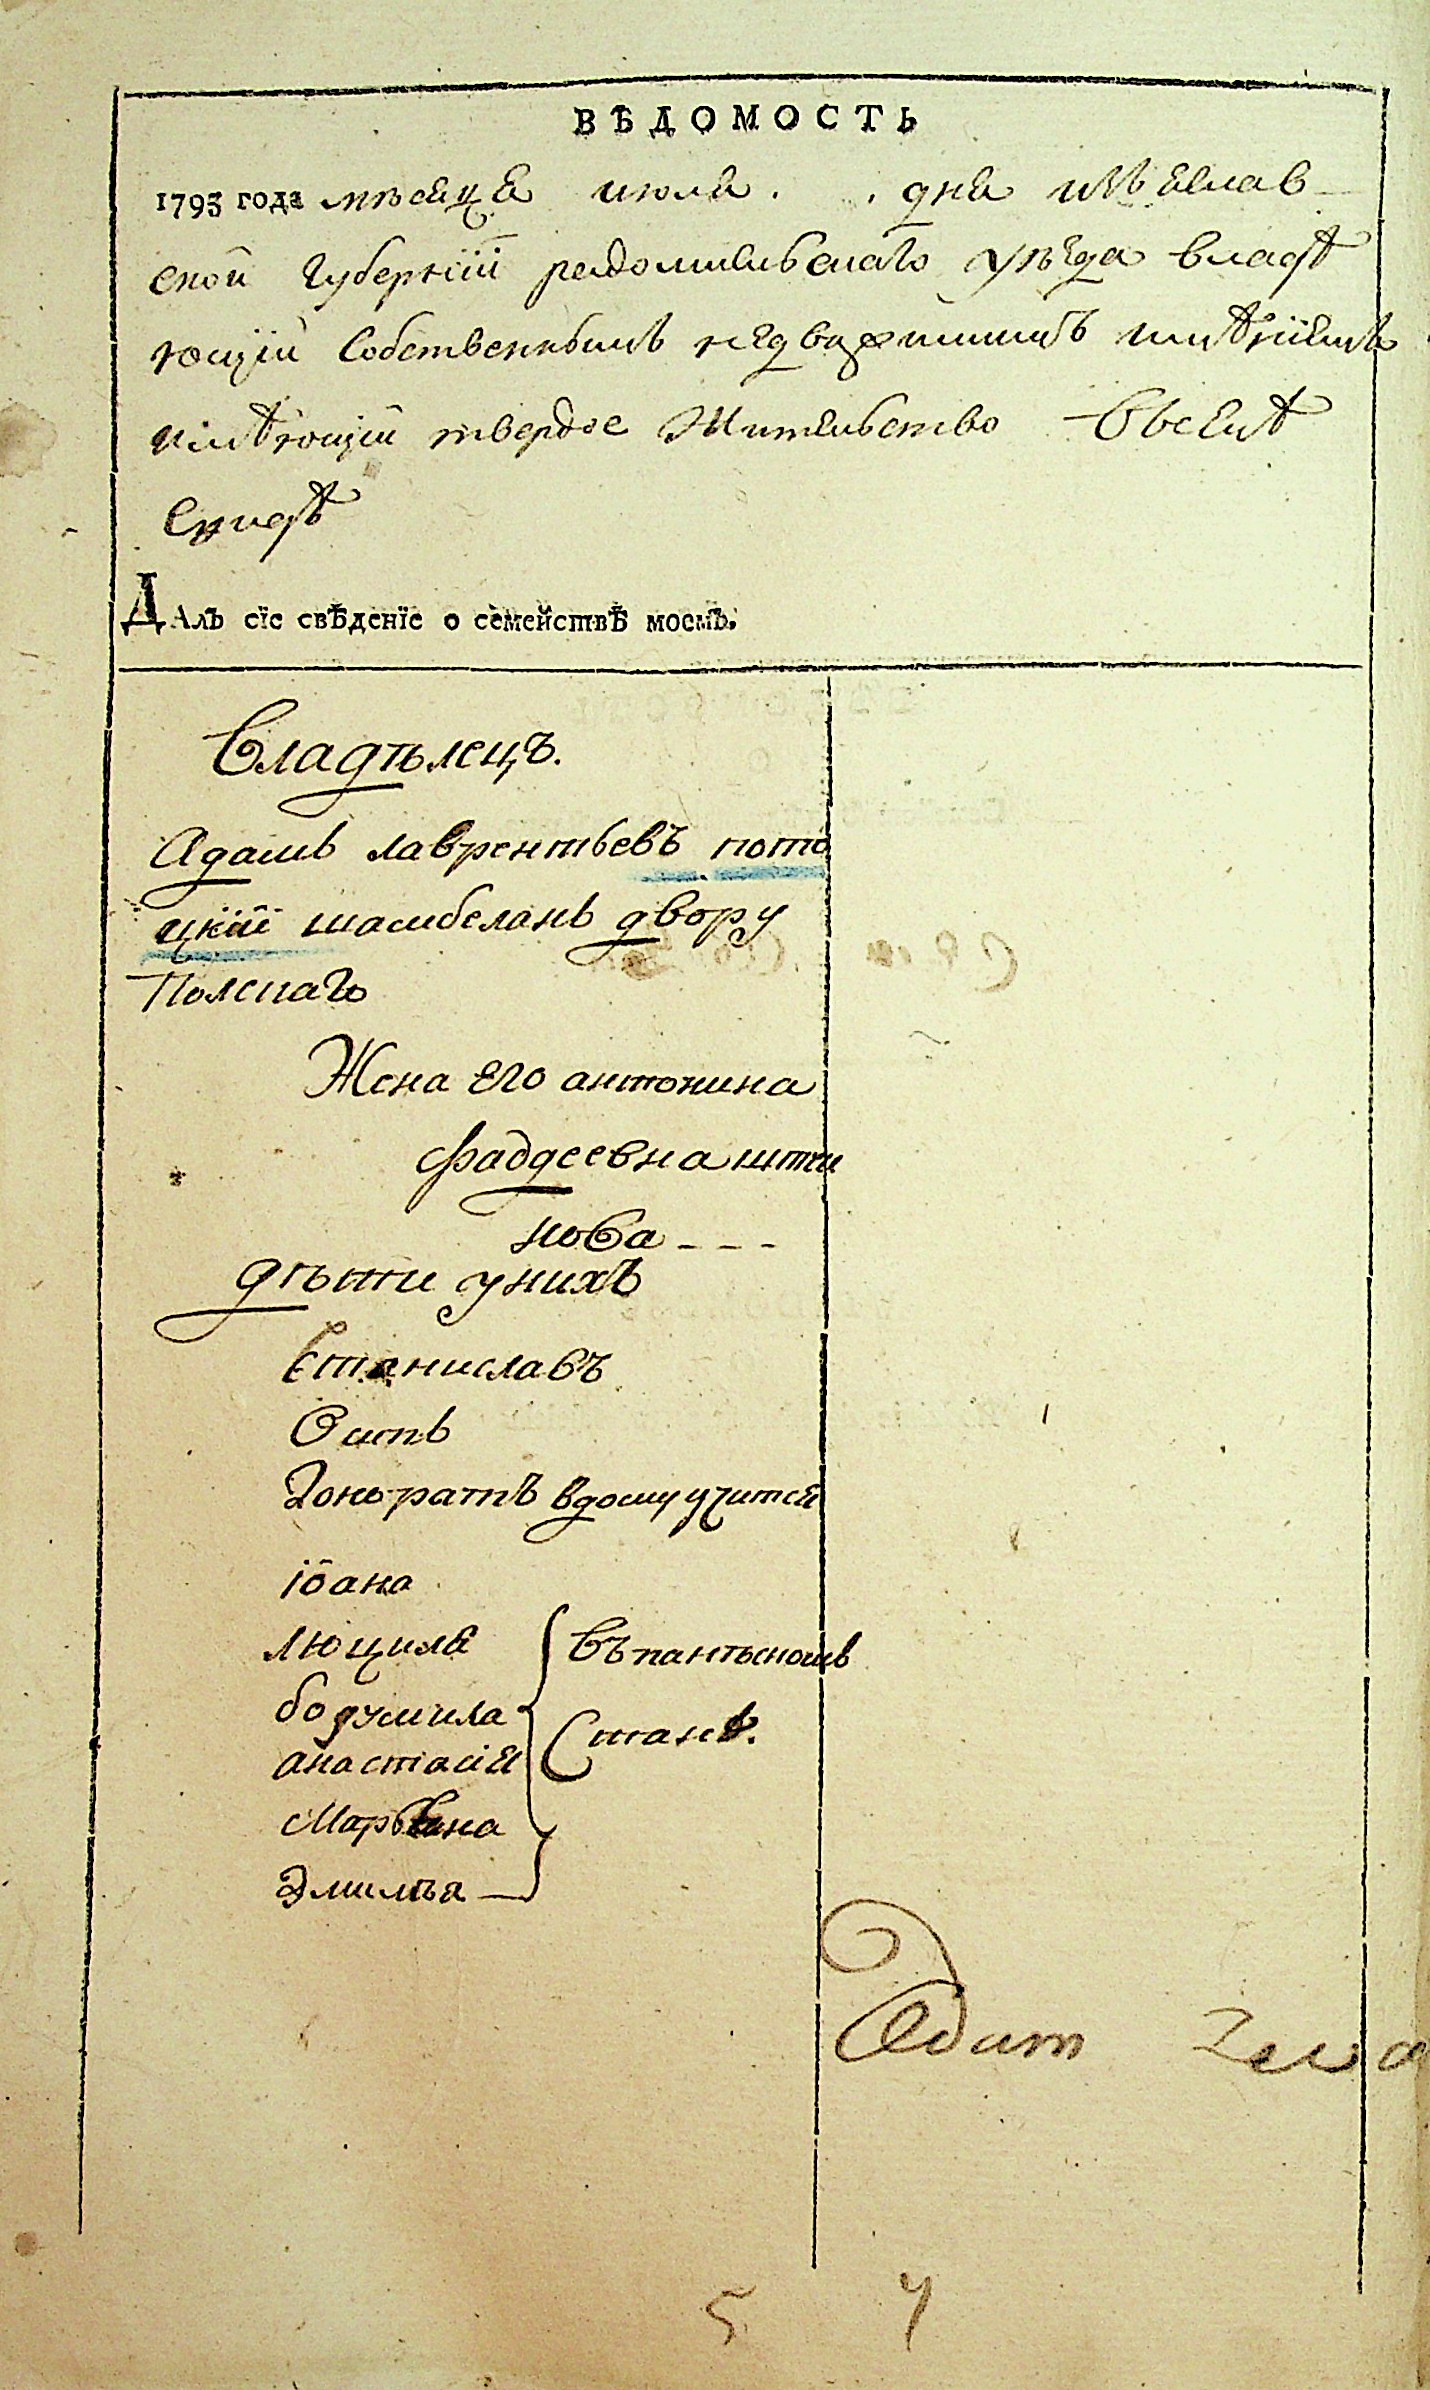 ВѢДОМОСТЬ
1793 года мѣсяца июля . . дня изяслав-
ской губернїи радомисльскаго уѣзда владѣ
ющїй собственнымъ недвижимымъ имѣнїемъ
имѣющїй твердое жительство въселѣ
Далъ сїе свѣденїе о семействѣ моемъ.
Владѣлецъ.
Адамъ лаврентьевъ пото
цкїй шамбеланъ двору
Полскаго
Жена его антонина
Фаддеевна
нова - - -
дѣти унихъ
Станиславъ
Осипъ
Гоноратъ вдому учится
їоана
люциля
богумила
въпанѣнскомъ
анастасїя
станѣ.
Марьяна
Эмилѣя
5 4